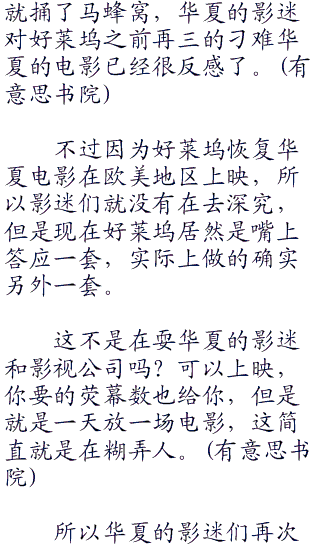 就捅了马蜂窝，华夏的影迷
对好莱坞之前再三的刁难华
夏的电影已经很反感了。(有
意思书院)
不过因为好莱坞恢复华
夏电影在欧美地区上映，所
以影迷们就没有在去深究，
但是现在好莱坞居然是嘴上
答应一套，实际上做的确实
另外一套。
这不是在耍华夏的影迷
和影视公司吗？可以上映，
你要的荧幕数也给你，但是
就是一天放一场电影，这简
直就是在糊弄人。(有意思书
院)
所以华夏的影迷们再次